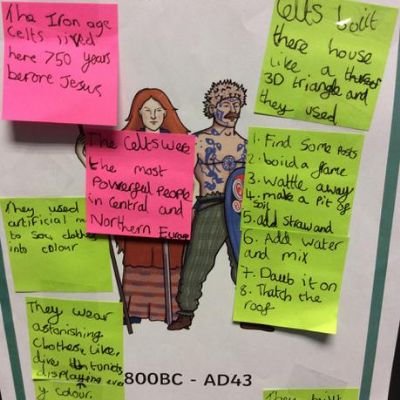 The Iron age
Celts lived
here 750 years
berore Jesus
Celts built
there house
like a
3D triangle and
they used
The Celts were
the most
Powerful People
in Central and
Northern Europe
1. Find Some Posts
2. boild a frame
3. wattle away
4. make a Pit of
soil
5. add straw and
6. Add water
and mix
7. Daub it on
8. Thatch the
roof
They used
artificial
to
into colour
They wear
astonishing
Clothes, Like,
y colour.
800BC - AD43
They built